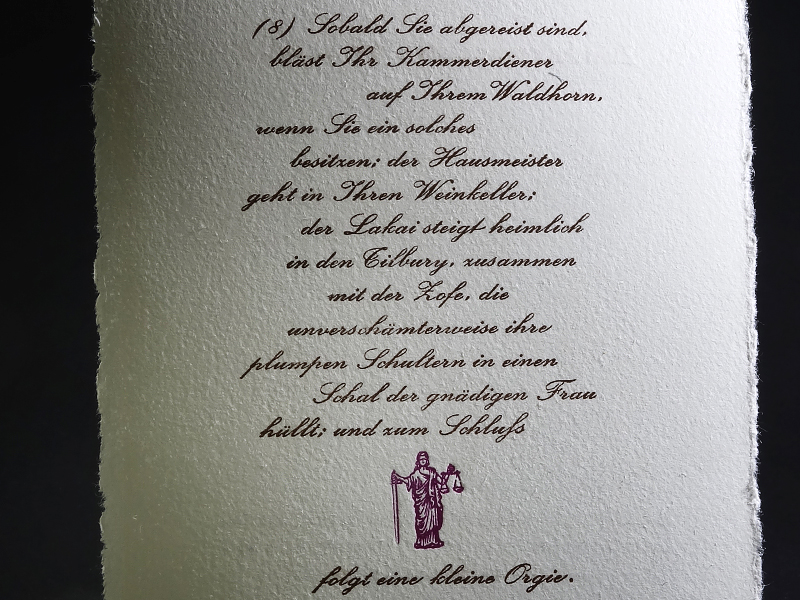 (8) Sobald Sie abgereist sind,
bläst Ihr Kammerdiener
auf Ihrem Waldhorn,
wenn Sie ein solches
besitzen; der Hausmeister
geht in Ihren Weinkeller;
der Lakai steigt heimlich
in den Tilbury, zusammen
mit der Zofe, die
unverschämterweise ihre
plumpen Schultern in einen
Schal der gnädigen Frau
hüllt; und zum Schluß
folgt eine kleine Orgie.